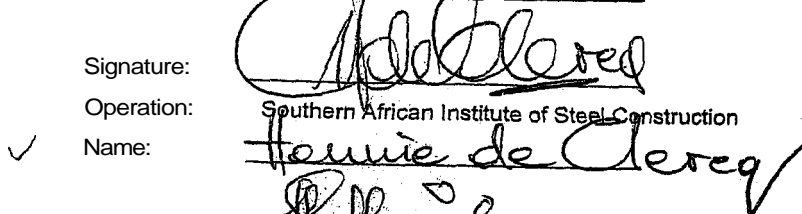 Signature: HdeClercq
Operation: Southern African Institute of Steel Construction
Name: Hennie de Clercq